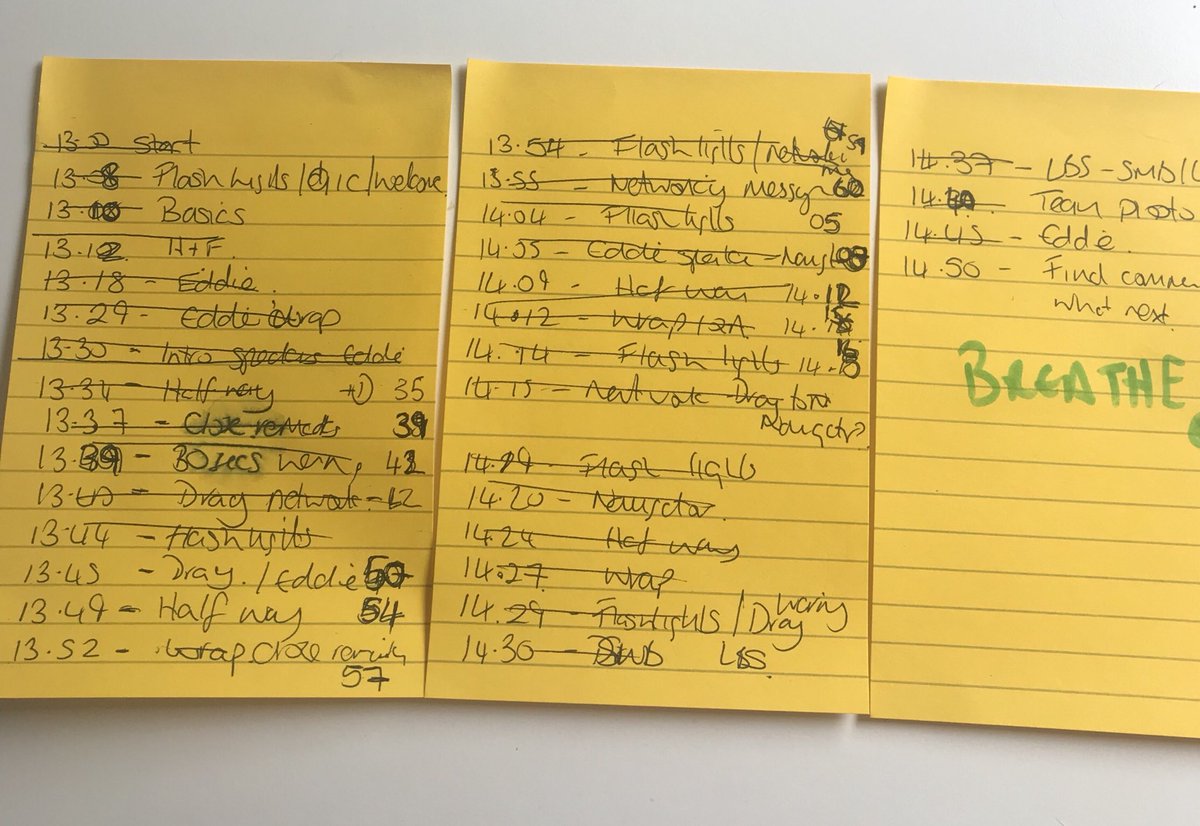 Start
Flashlights / /welcome
13. Basics
13.12 H+F
13.18 - Eddie.
13.29 - Eddie wrap
13.30 - Intro speakers Eddie
13.34 - Half way 35
13.37 - Close remarks 39
13.39 - 42
13. - Dray network - 42
13.44 - Flashlights
13.45 - Dray. / Eddie 50
13.49 - Half way 54
13.52 - wrap close remarks
57
13.54 - Flashlights/network 59
13.55 - Networking message 60
14.04 - Flashlights 05
14.55 - Eddie speaker -
14.09 - Half way 14.12
14.12 - Wrap 14.
14.14 - Flash lights 14.18
14.15 - Network - Dray
14.29 - Flash lights
14.20 -
14.24 Half way
14.27 wrap
14.29 - Flashlights / Dray
14.30 - LBS
14.37 - LBS - SMB/L
14.40 Team photo
14.45 - Eddie.
14.50 - Find
what next.
BREATHE